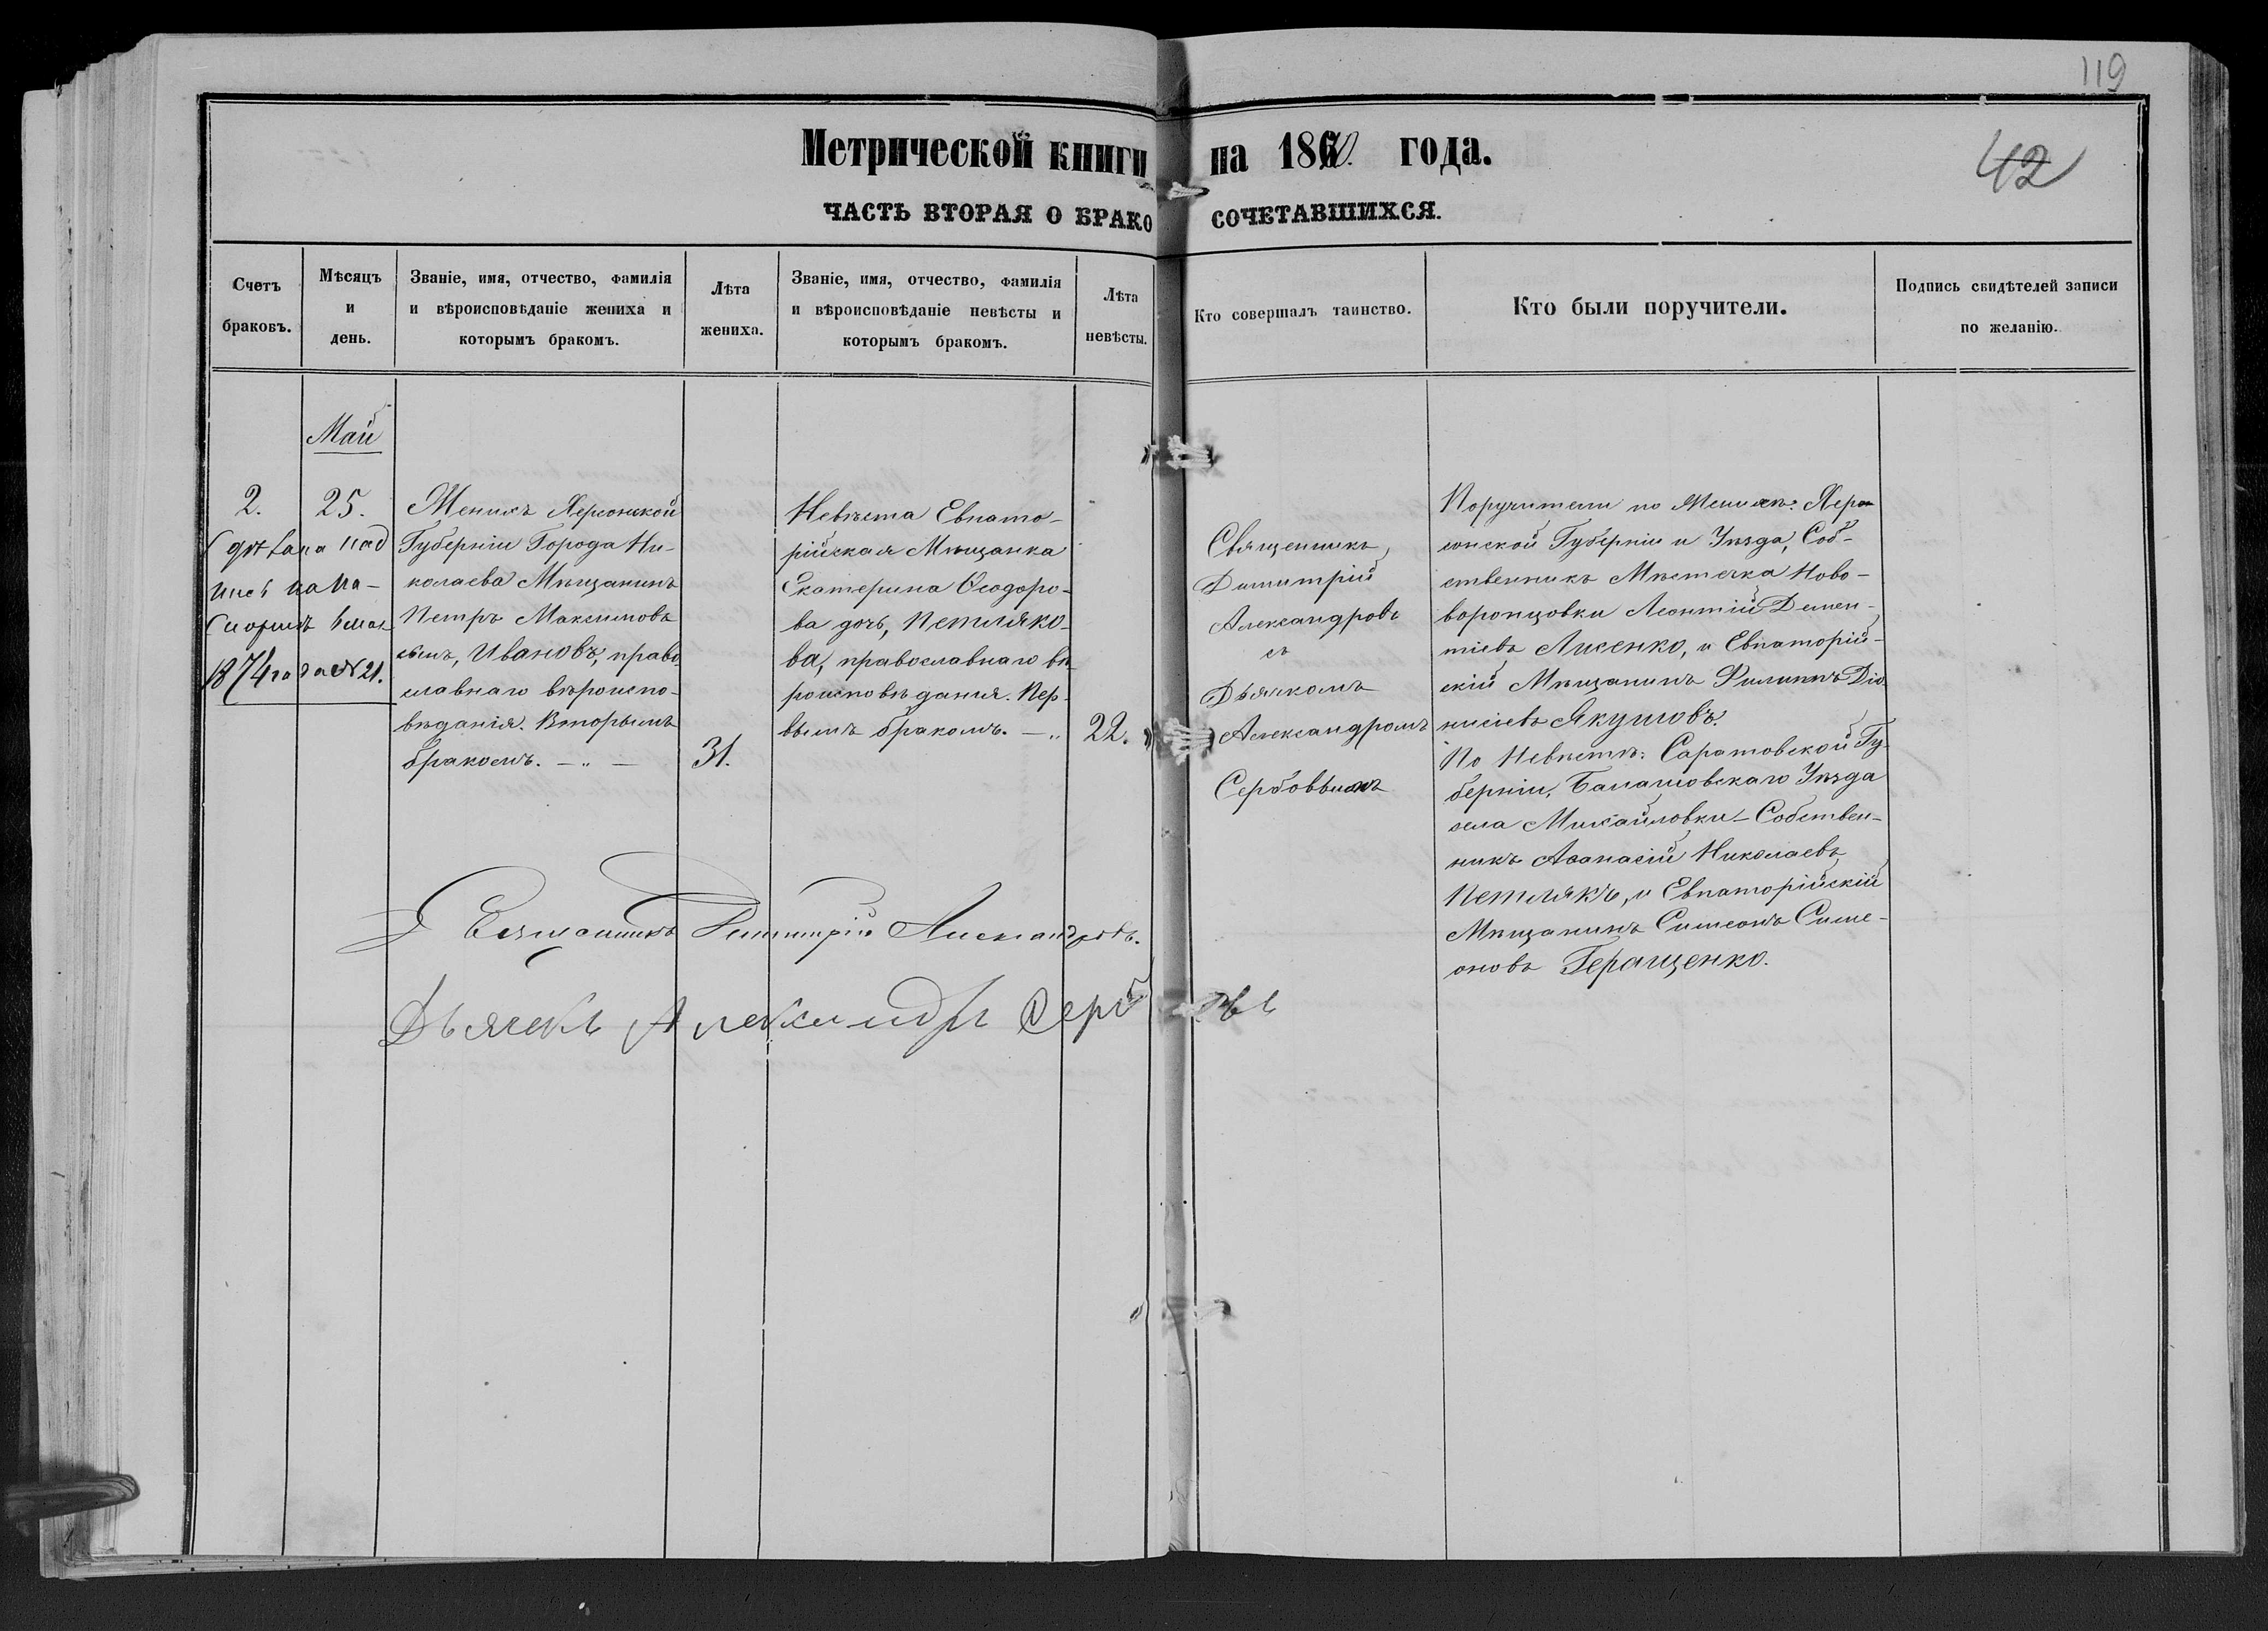 119
42
Метрической книги на 1870. года.
ЧАСТЬ ВТОРАЯ О БРАКОСОЧЕТАВШИХСЯ.
Счетъ браковъ.
Мѣсяцъ и день.
Званіе, имя, отчество, фамилія и вѣроисповѣданіе жениха и которымъ бракомъ.
Лѣта жениха.
Званіе, имя, отчество, фамилія и вѣроисповѣданіе невѣсты и которымъ бракомъ.
Лѣта невѣсты.
Кто совершалъ таинство.
Кто были поручители.
Подпись свидѣтелей записи по желанію.
Май
2.
25.
дѣлана над
пись на па
1874 года № 21.
Женихъ Херсонской
Губерніи Города Ни-
колаева Мѣщанинъ
Петръ Максимовъ
сынъ, Ивановъ, право
славнаго вѣроиспо-
вѣданія. Вторымъ
бракомъ. — „ —
31.
Невѣста Евпато-
рійская Мѣщанка
Екатерина Ѳеодоро-
ва дочь, Петляко-
ва, православнаго вѣ
роисповѣдания. Пер-
вымъ бракомъ. — „
22.
Священникъ
Димитрій
Александровъ
съ
Дьячкомъ
Александромъ
Сербовымъ
Поручители по Женихѣ: Хер
сонской Губерніи и Уѣзда, Соб-
ственникъ Мѣстечка Ново-
воронцовки Леонтій Демен-
тіевъ Лисенко, и Евпаторій-
скій Мѣщанинъ Филиппъ Діо
нисіевъ Якушовъ.
По Невѣстѣ: Саратовской Гу-
берніи, Балашовскаго Уѣзда
села Михайловки — Собствен-
никъ Аѳанасій Николаевъ
Петлякъ, и Евпаторійскій
Мѣщанинъ Симеонъ Симе-
оновъ Геращенко.
Священникъ Димитрій Александровъ.
Дьячекъ Александръ Сербовъ